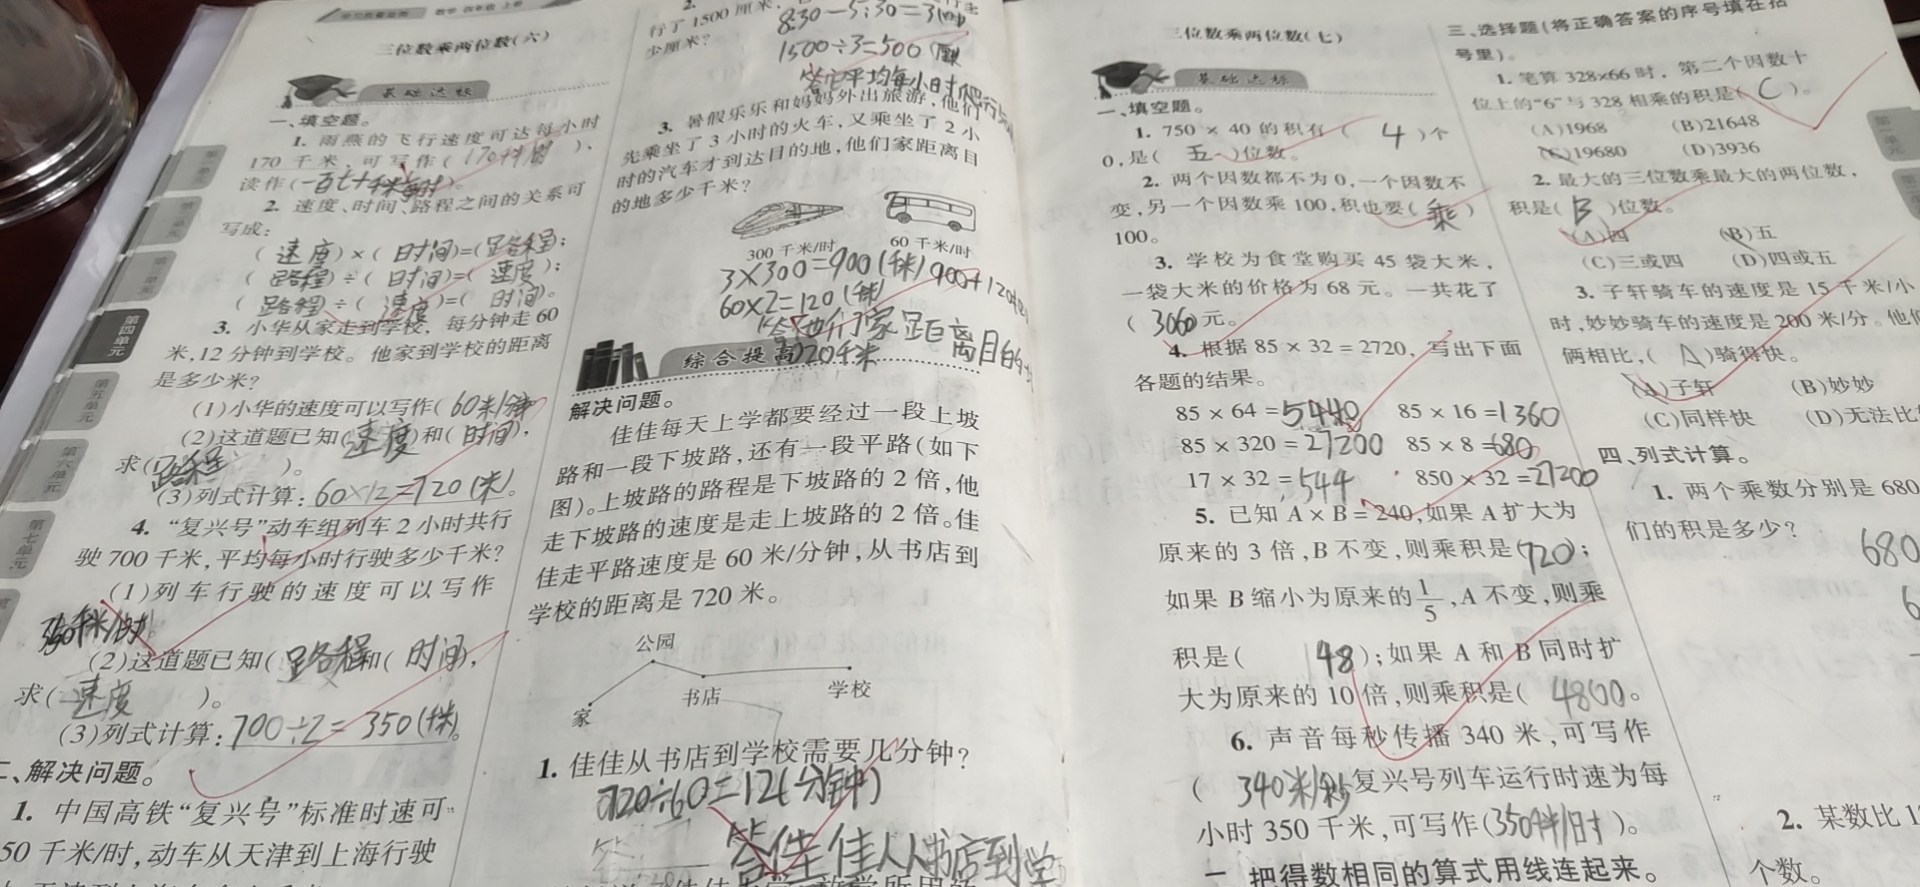 三位数乘两位数(六)
基础达标
一、填空题。
1. 雨燕的飞行速度可达每小时
170 千米,可写作( 170千米/时 )、
读作(一百七十千米每时)。
2. 速度、时间、路程之间的关系可
写成:
( 速度 )×( 时间)=(路程);
( 路程)÷( 时间)=( 速度 );
( 路程)÷( 速度)=( 时间)。
3. 小华从家走到学校, 每分钟走 60
米,12 分钟到学校。他家到学校的距离
是多少米?
(1)小华的速度可以写作( 60米/分钟
(2)这道题已知(速度)和( 时间),
求(路程 )。
(3)列式计算: 60×12=720(米)。
4. “复兴号”动车组列车 2 小时共行
驶 700 千米,平均每小时行驶多少千米?
(1)列车行驶的速度可以写作
350千米/时。
(2)这道题已知( 路程和( 时间),
求( 速度 )。
(3)列式计算: 700÷2= 350(千米)。
二、解决问题。
1. 中国高铁“复兴号”标准时速可
50 千米/时,动车从天津到上海行驶
2.
行了 1500 厘米,
少厘米?
8:30-5:30=3(时)
1500÷3=500(厘米
答:它平均每小时爬行
3. 暑假乐乐和妈妈外出旅游,他们
先乘坐了 3 小时的火车,又乘坐了 2 小
时的汽车才到达目的地,他们家距离目
的地多少千米?
300 千米/时 60 千米/时
3×300=900(千米) 900+120
60×2=120(千米)
答:他们家距离目的地
1020千米
综合提高
解决问题。
佳佳每天上学都要经过一段上坡
路和一段下坡路,还有一段平路(如下
图)。上坡路的路程是下坡路的 2 倍,他
走下坡路的速度是走上坡路的 2 倍。佳
佳走平路速度是 60 米/分钟,从书店到
学校的距离是 720 米。
公园
家 书店 学校
1. 佳佳从书店到学校需要几分钟?
720÷60=12(分钟)
答:佳佳从书店到学
三位数乘两位数(七)
基础达标
一、填空题。
1. 750 × 40 的积有( 4 )个
0,是( 五 )位数。
2. 两个因数都不为 0,一个因数不
变,另一个因数乘 100,积也要( 乘 )
100。
3. 学校为食堂购买 45 袋大米,
一袋大米的价格为 68 元。一共花了
( 3060元。
4. 根据 85 × 32 = 2720, 写出下面
各题的结果。
85 × 64 =5440 85 × 16 =1360
85 × 320 =27200 85 × 8 =680
17 × 32 =544 850 × 32 =27200
5. 已知 A × B = 240,如果 A 扩大为
原来的 3 倍,B 不变,则乘积是(720);
如果 B 缩小为原来的1/5,A 不变,则乘
积是( 48);如果 A 和 B 同时扩
大为原来的 10 倍,则乘积是( 4800。
6. 声音每秒传播 340 米,可写作
( 340米/秒 复兴号列车运行时速为每
小时 350 千米,可写作(350千米/时 )。
二、把得数相同的算式用线连起来。
三、选择题(将正确答案的序号填在括
号里)。
1. 笔算 328×66 时, 第二个因数十
位上的“6”与 328 相乘的积是( C )。
(A)1968 (B)21648
(C)19680 (D)3936
2. 最大的三位数乘最大的两位数,
积是( B )位数。
(A)四 (B)五
(C)三或四 (D)四或五
3. 子轩骑车的速度是 15 千米/小
时,妙妙骑车的速度是 200 米/分。他们
俩相比,( A )骑得快。
(A)子轩 (B)妙妙
(C)同样快 (D)无法比
四、列式计算。
1. 两个乘数分别是 680
们的积是多少?
680
2. 某数比 1
个数。
第四单元
第五单元
第六单元
第七单元